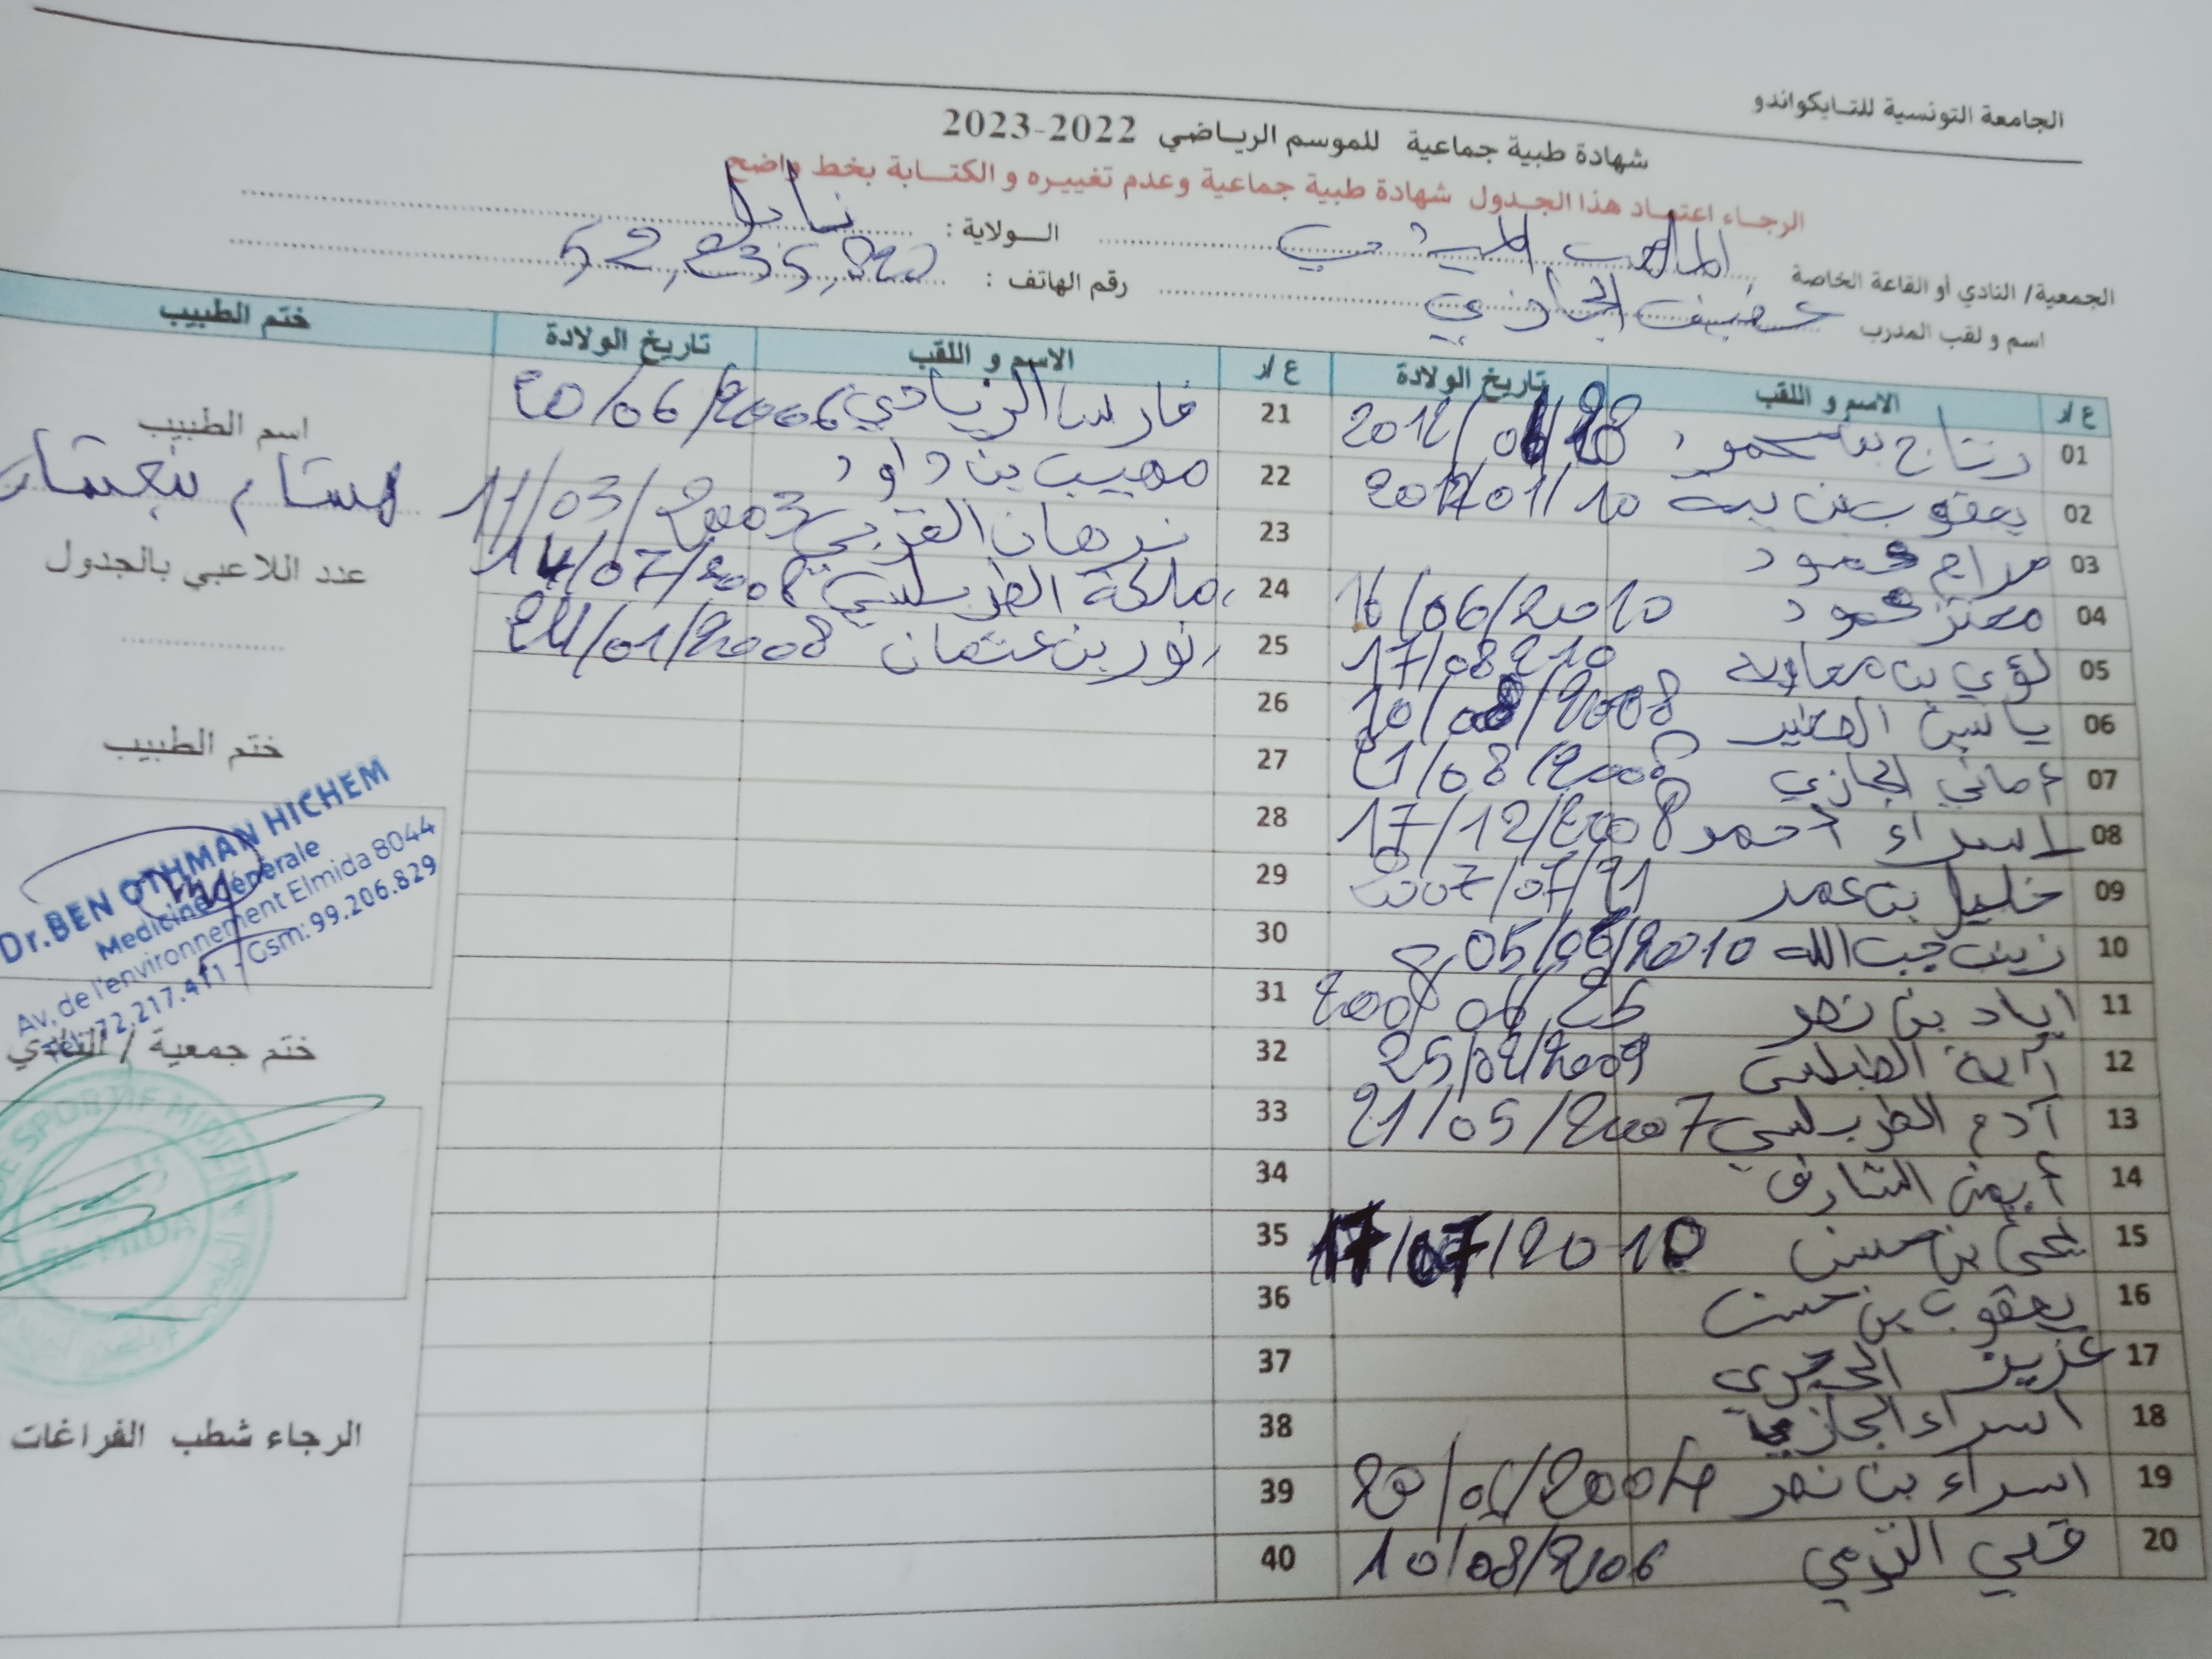 الجامعة التونسية للتايكواندو
شهادة طبية جماعية للموسم الرياضي 2022-2023
الرجاء اعتماد هذا الجدول شهادة طبية جماعية وعدم تغييره و الكتابة بخط واضح
الجمعية/ النادي أو القاعة الخاصة الملعب الميدي الولاية : نابل
اسم و لقب المدرب الحجازي رقم الهاتف :
ع/ر الاسم و اللقب تاريخ الولادة ع/ر الاسم و اللقب تاريخ الولادة ختم الطبيب
01 رتاج بن محمود 21 فارس الزيادي 20/06/2006
02 يعقوب بن 10/01/2012 22 مهيب بن داود
03 حمود 23 نرهان 11/03/2003
04 معتز حمود 16/06/2010 24 ملكة الطرابلسي 14/07/2008
05 لؤي بن معاوية 17/08/210 25 نور بن عثمان 24/01/2008
06 ياسين 10/08/2008 26
07 أماني الحجازي 21/08/2008 27
08 اسراء أحمد 17/12/2008 28
09 خليل بن عمر 2007/07/21 29
10 زينب جب الله 05/06/2010 30
11 اياد بن نصر 2008 06 25 31
12 آية 25/02/2009 32
13 آدم الطرابلسي 21/05/2007 33
14 أيمن الشارف 34
15 يحيى بن حسين 17/07/2010 35
16 يعقوب بن حسن 36
17 عزيز 37
18 اسراء الحجازي 38
19 اسراء بن نصر 39
20 قصي 10/08/2006 40
اسم الطبيب
هشام بنعثمان
عدد اللاعبي بالجدول
ختم الطبيب
Dr.BEN OTHMAN HICHEM
Medicine Générale
Av. de l'environnement Elmida 8044
Tél: 72.217.411 - Gsm: 99.206.829
ختم جمعية / النادي
SPORTIF MIDIEN
EL MIDA
الرجاء شطب الفراغات